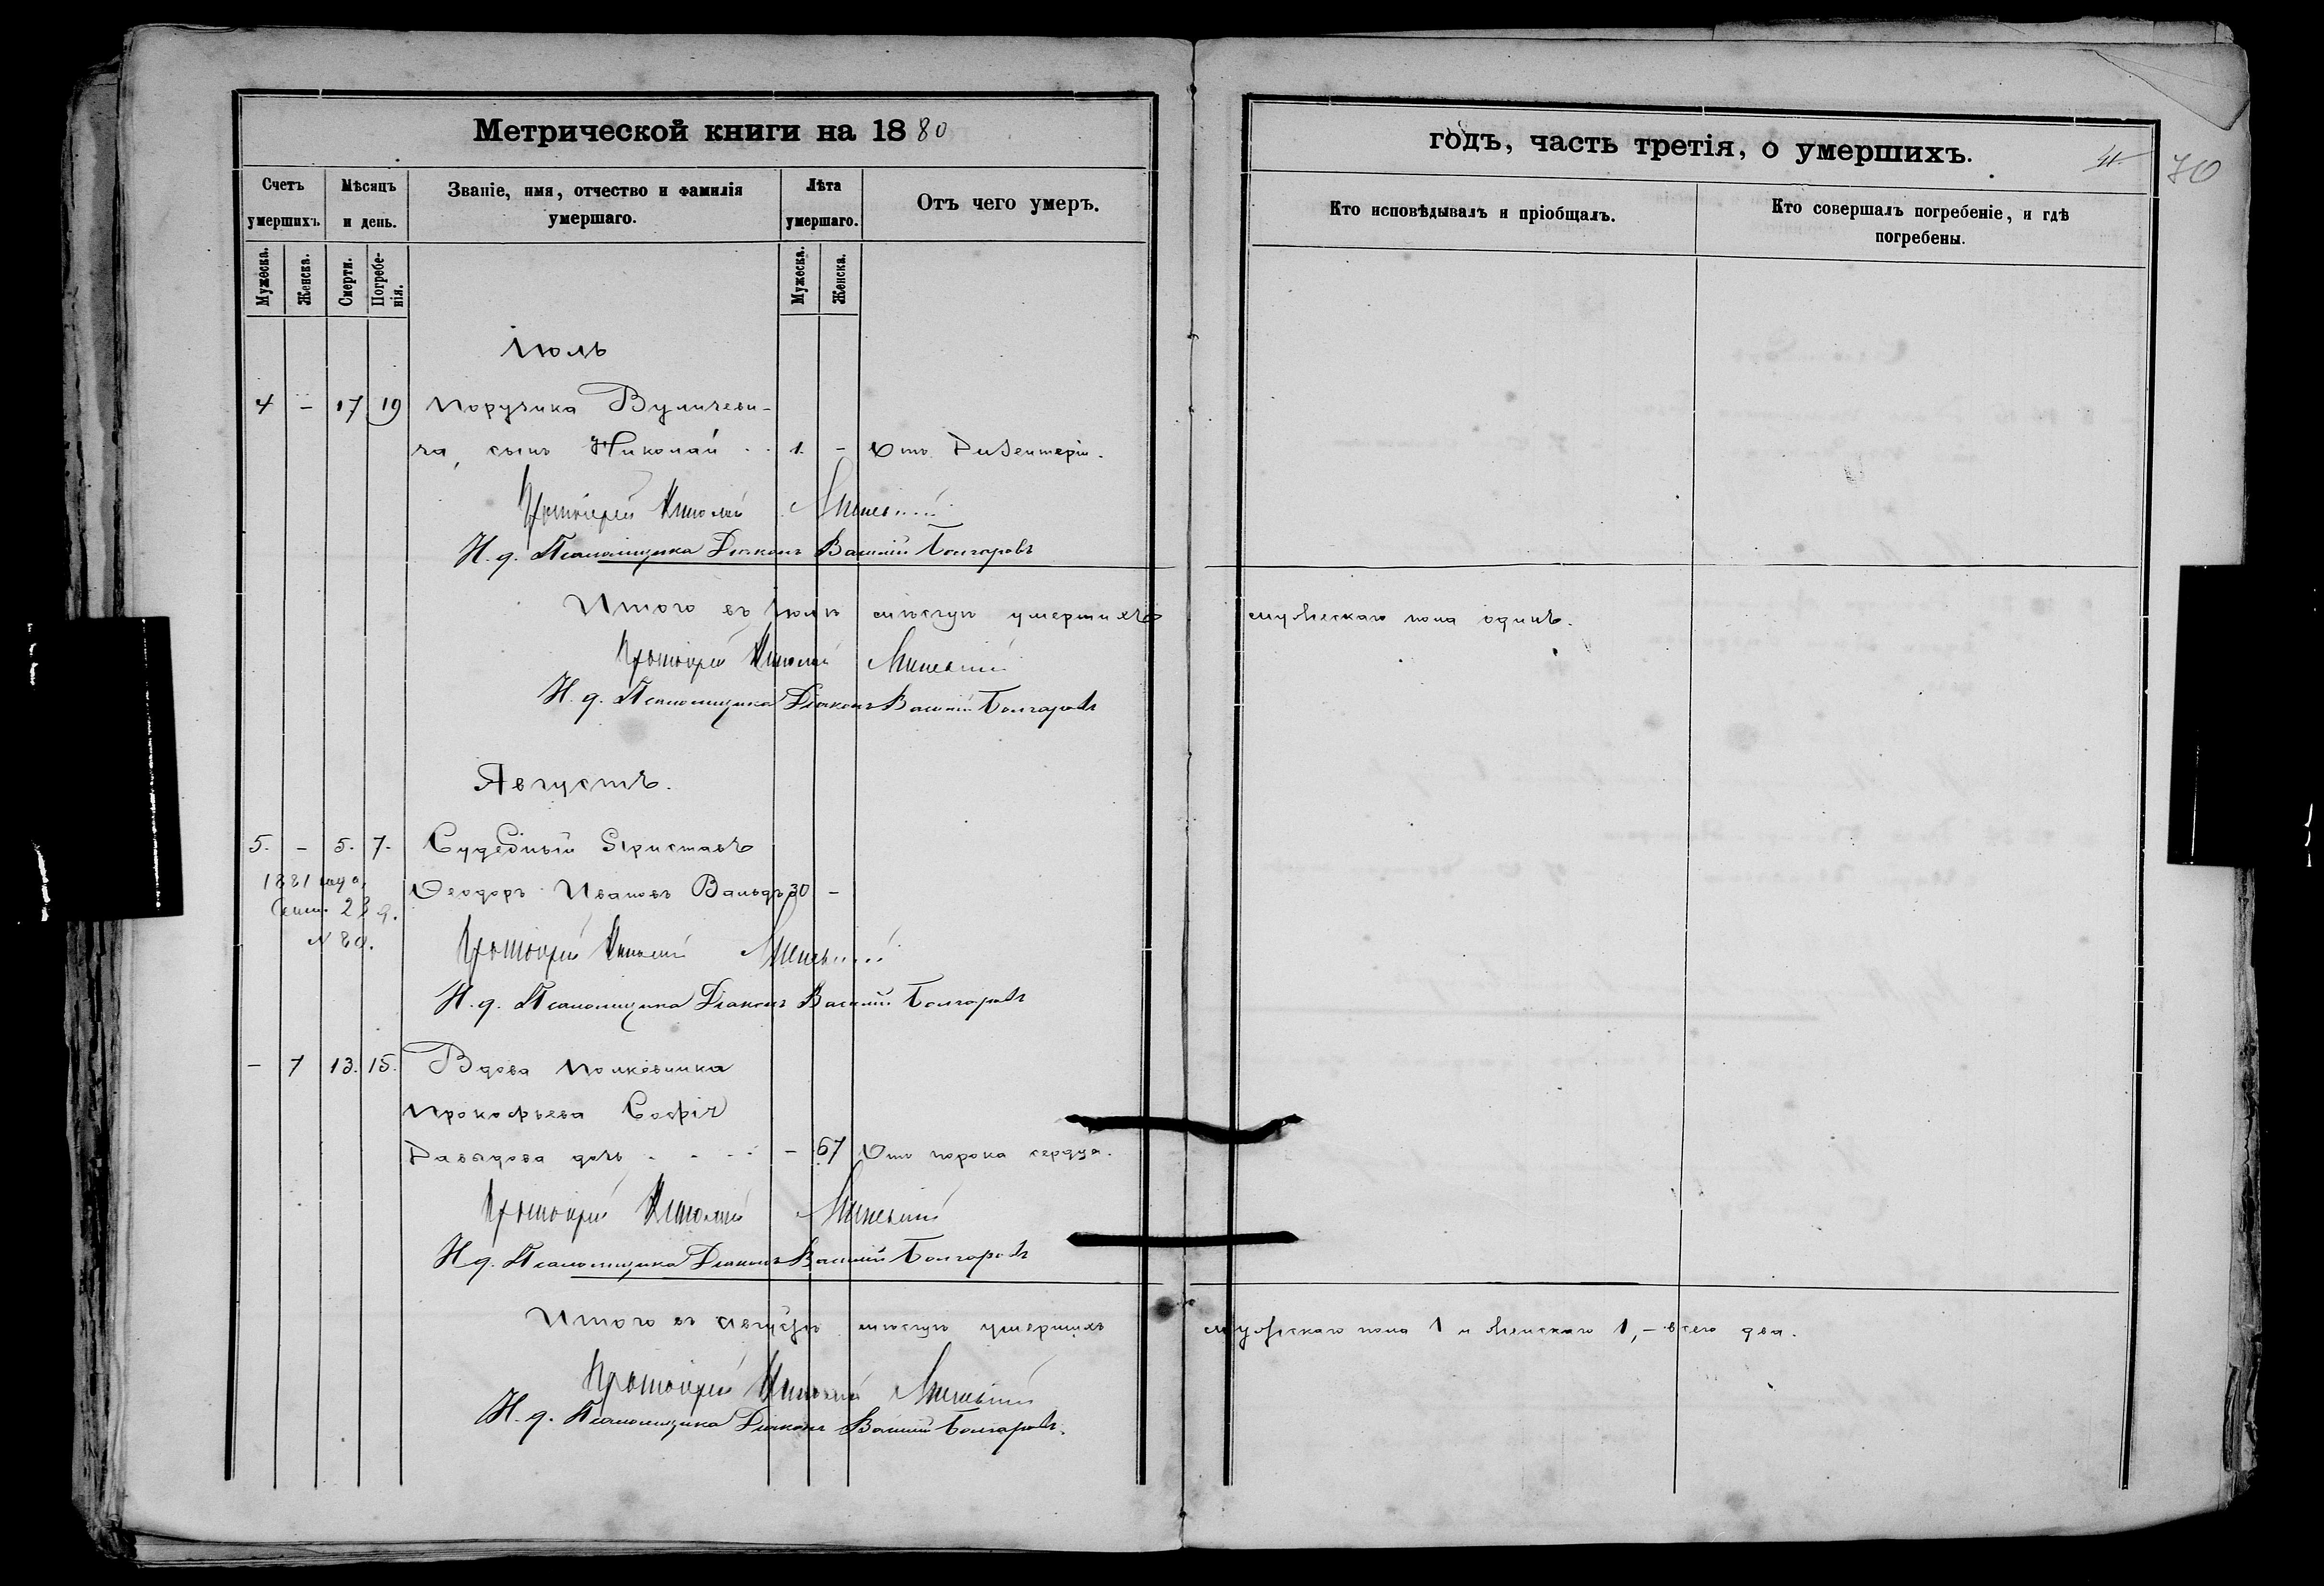 Метрической книги на 1880
годъ, часть третія, о умершихъ.
70
Счетъ умершихъ.
Мѣсяцъ и день.
Званіе, имя, отчество и фамилія умершаго.
Лѣта умершаго.
Отъ чего умеръ.
Кто исповѣдывалъ и пріобщалъ.
Кто совершалъ погребеніе, и гдѣ погребены.
Мужеска.
Женска.
Смерти.
Погребенія.
Мужеска.
Женска.
Іюль
4 – 17 19 Поручика Вуличеви-
ча, сынъ Николай 1. – Отъ Дизентеріи.
Протоіерей Николай
И. д. Псаломщика Діаконъ Василій Болгаровъ
Итого въ Іюлѣ мѣсяцѣ умершихъ мужескаго пола одинъ.
Протоіерей Николай
И. д. Псаломщика Діаконъ Василій Болгаровъ
Августъ.
5. – 5. 7. Судебный Приставъ
1881 года Ѳеодоръ Ивановъ Вальдъ 30 –
Сент. 23 д.
№ 80.
Протоіерей Николай
И. д. Псаломщика Діаконъ Василій Болгаровъ
– 7 13. 15. Вдова Полковника
Прокофьева Софія
Давыдова дочь – 67 Отъ порока сердца.
Протоіерей Николай
И. д. Псаломщика Діаконъ Василій Болгаровъ
Итого въ Августѣ мѣсяцѣ умершихъ мужескаго пола 1 и женскаго 1, – всего два.
Протоіерей Николай
И. д. Псаломщика Діаконъ Василій Болгаровъ.